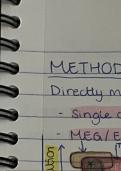 METHOD
Directly m
- Single
- MEG/E